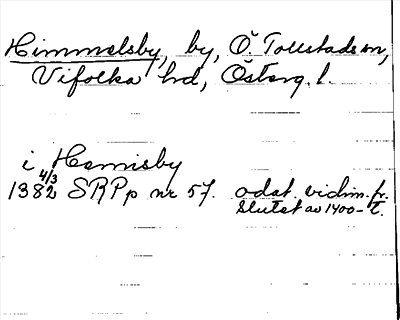 Himmelsby, by, Ö. Tollstads sn,
Vifolka hd, Österg. l.
i Hemisby
1382 4/3 SRPp nr 57. odat. vidim. fr.
slutet av 1400-t.